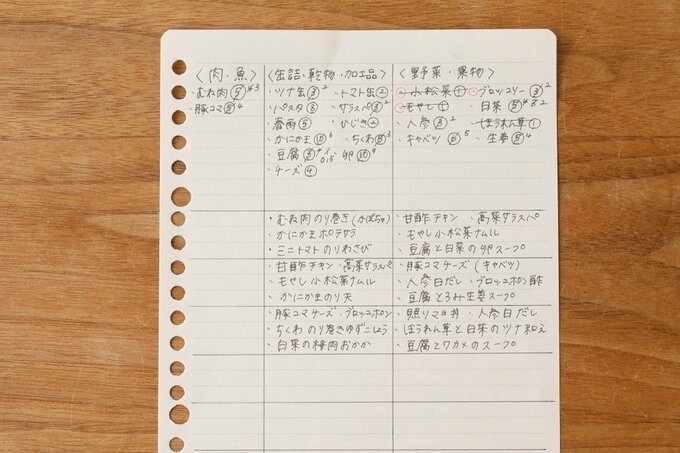 〈肉、魚〉 〈缶詰、乾物・加工品〉 〈野菜・果物〉
・むね肉⑤*3 ・ツナ缶③2 ・トマト缶② ・小松菜① ・ブロッコリー③2
・豚コマ⑤4 ・パスタ⑥ ・サラスパ③2 ・もやし① ・白菜⑤*32
・春雨⑤ ・ひじき② ・人参③2 ・ほうれん草①
・かにかま⑩ ・ちくわ⑤3 ・キャベツ⑥5 ・生姜⑤
・豆腐③ ・卵⑩
・チーズ④
・むね肉のり巻き(かぼちゃ) ・甘酢チキン ・高菜サラスパ
・かにかまポテサラ ・もやし小松菜ナムル
・ミニトマトのりわさび ・豆腐と白菜の卵スープ
・甘酢チキン ・高菜サラスパ ・豚コマチーズ(キャベツ)
・もやし小松菜ナムル ・人参白だし ・ブロッコポン酢
・かにかまのり天 ・豆腐とろみ生姜スープ
・豚コマチーズ ・ブロッコポン ・照りマヨ丼 ・人参白だし
・ちくわのり巻きゆずこしょう ・ほうれん草と白菜のツナ和え
・白菜の梅肉おかか ・豆腐とワカメのスープ